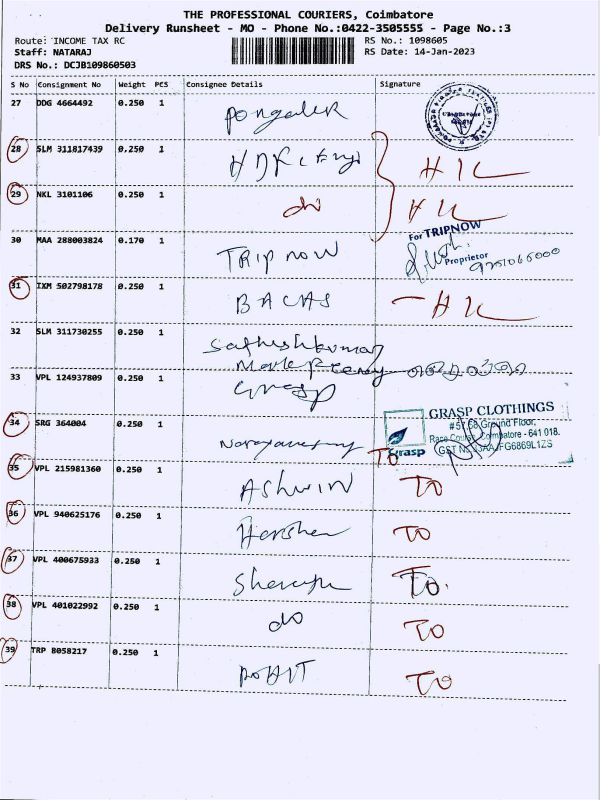 THE PROFESSIONAL COURIERS, Coimbatore
Delivery Runsheet - MO - Phone No.:0422-3505555 - Page No.:3
Route: INCOME TAX RC RS No.: 1098605
Staff: NATARAJ RS Date: 14-Jan-2023
DRS No.: DCJB109860503
S No Consignment No Weight PCS Consignee Details Signature
27 DDG 4664492 0.250 1
28 SLM 311817439 0.250 1 HDFC
29 NKL 3101106 0.250 1 do
For TRIPNOW
30 MAA 288003824 0.170 1 Trip now
Proprietor
31 IXM 502798178 0.250 1 BACAS
32 SLM 311730255 0.250 1 Satheshkumar
33 VPL 124937809 0.250 1 Grasp
GRASP CLOTHINGS
# 57,58 Ground Floor,
Race Course, Coimbatore - 641 018.
Grasp
34 SRG 364004 0.250 1 TO
35 VPL 215981360 0.250 1 ASHWIN TO
36 VPL 940625176 0.250 1 TO
37 VPL 400675933 0.250 1 TO
38 VPL 401022992 0.250 1 do TO
39 TRP 8058217 0.250 1 ROHIT TO